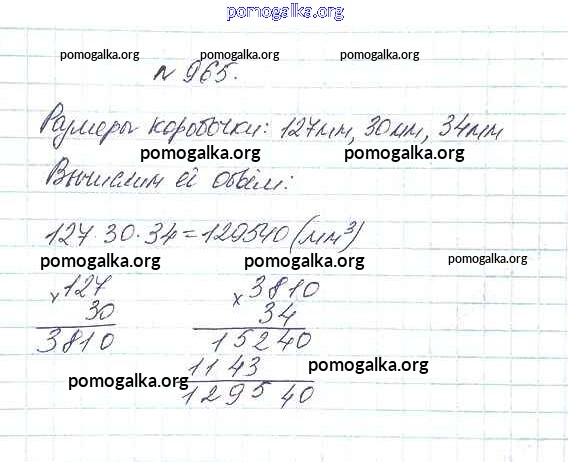 pomogalka.org
pomogalka.org pomogalka.org pomogalka.org
№ 965.
Размеры коробочки: 127мм, 30мм, 34мм
pomogalka.org pomogalka.org
Вычислим её объём:
127·30·34=129540(мм³)
pomogalka.org pomogalka.org pomogalka.org
×127 ×3810
30 34
3810 15240
1143 pomogalka.org
pomogalka.org
129540